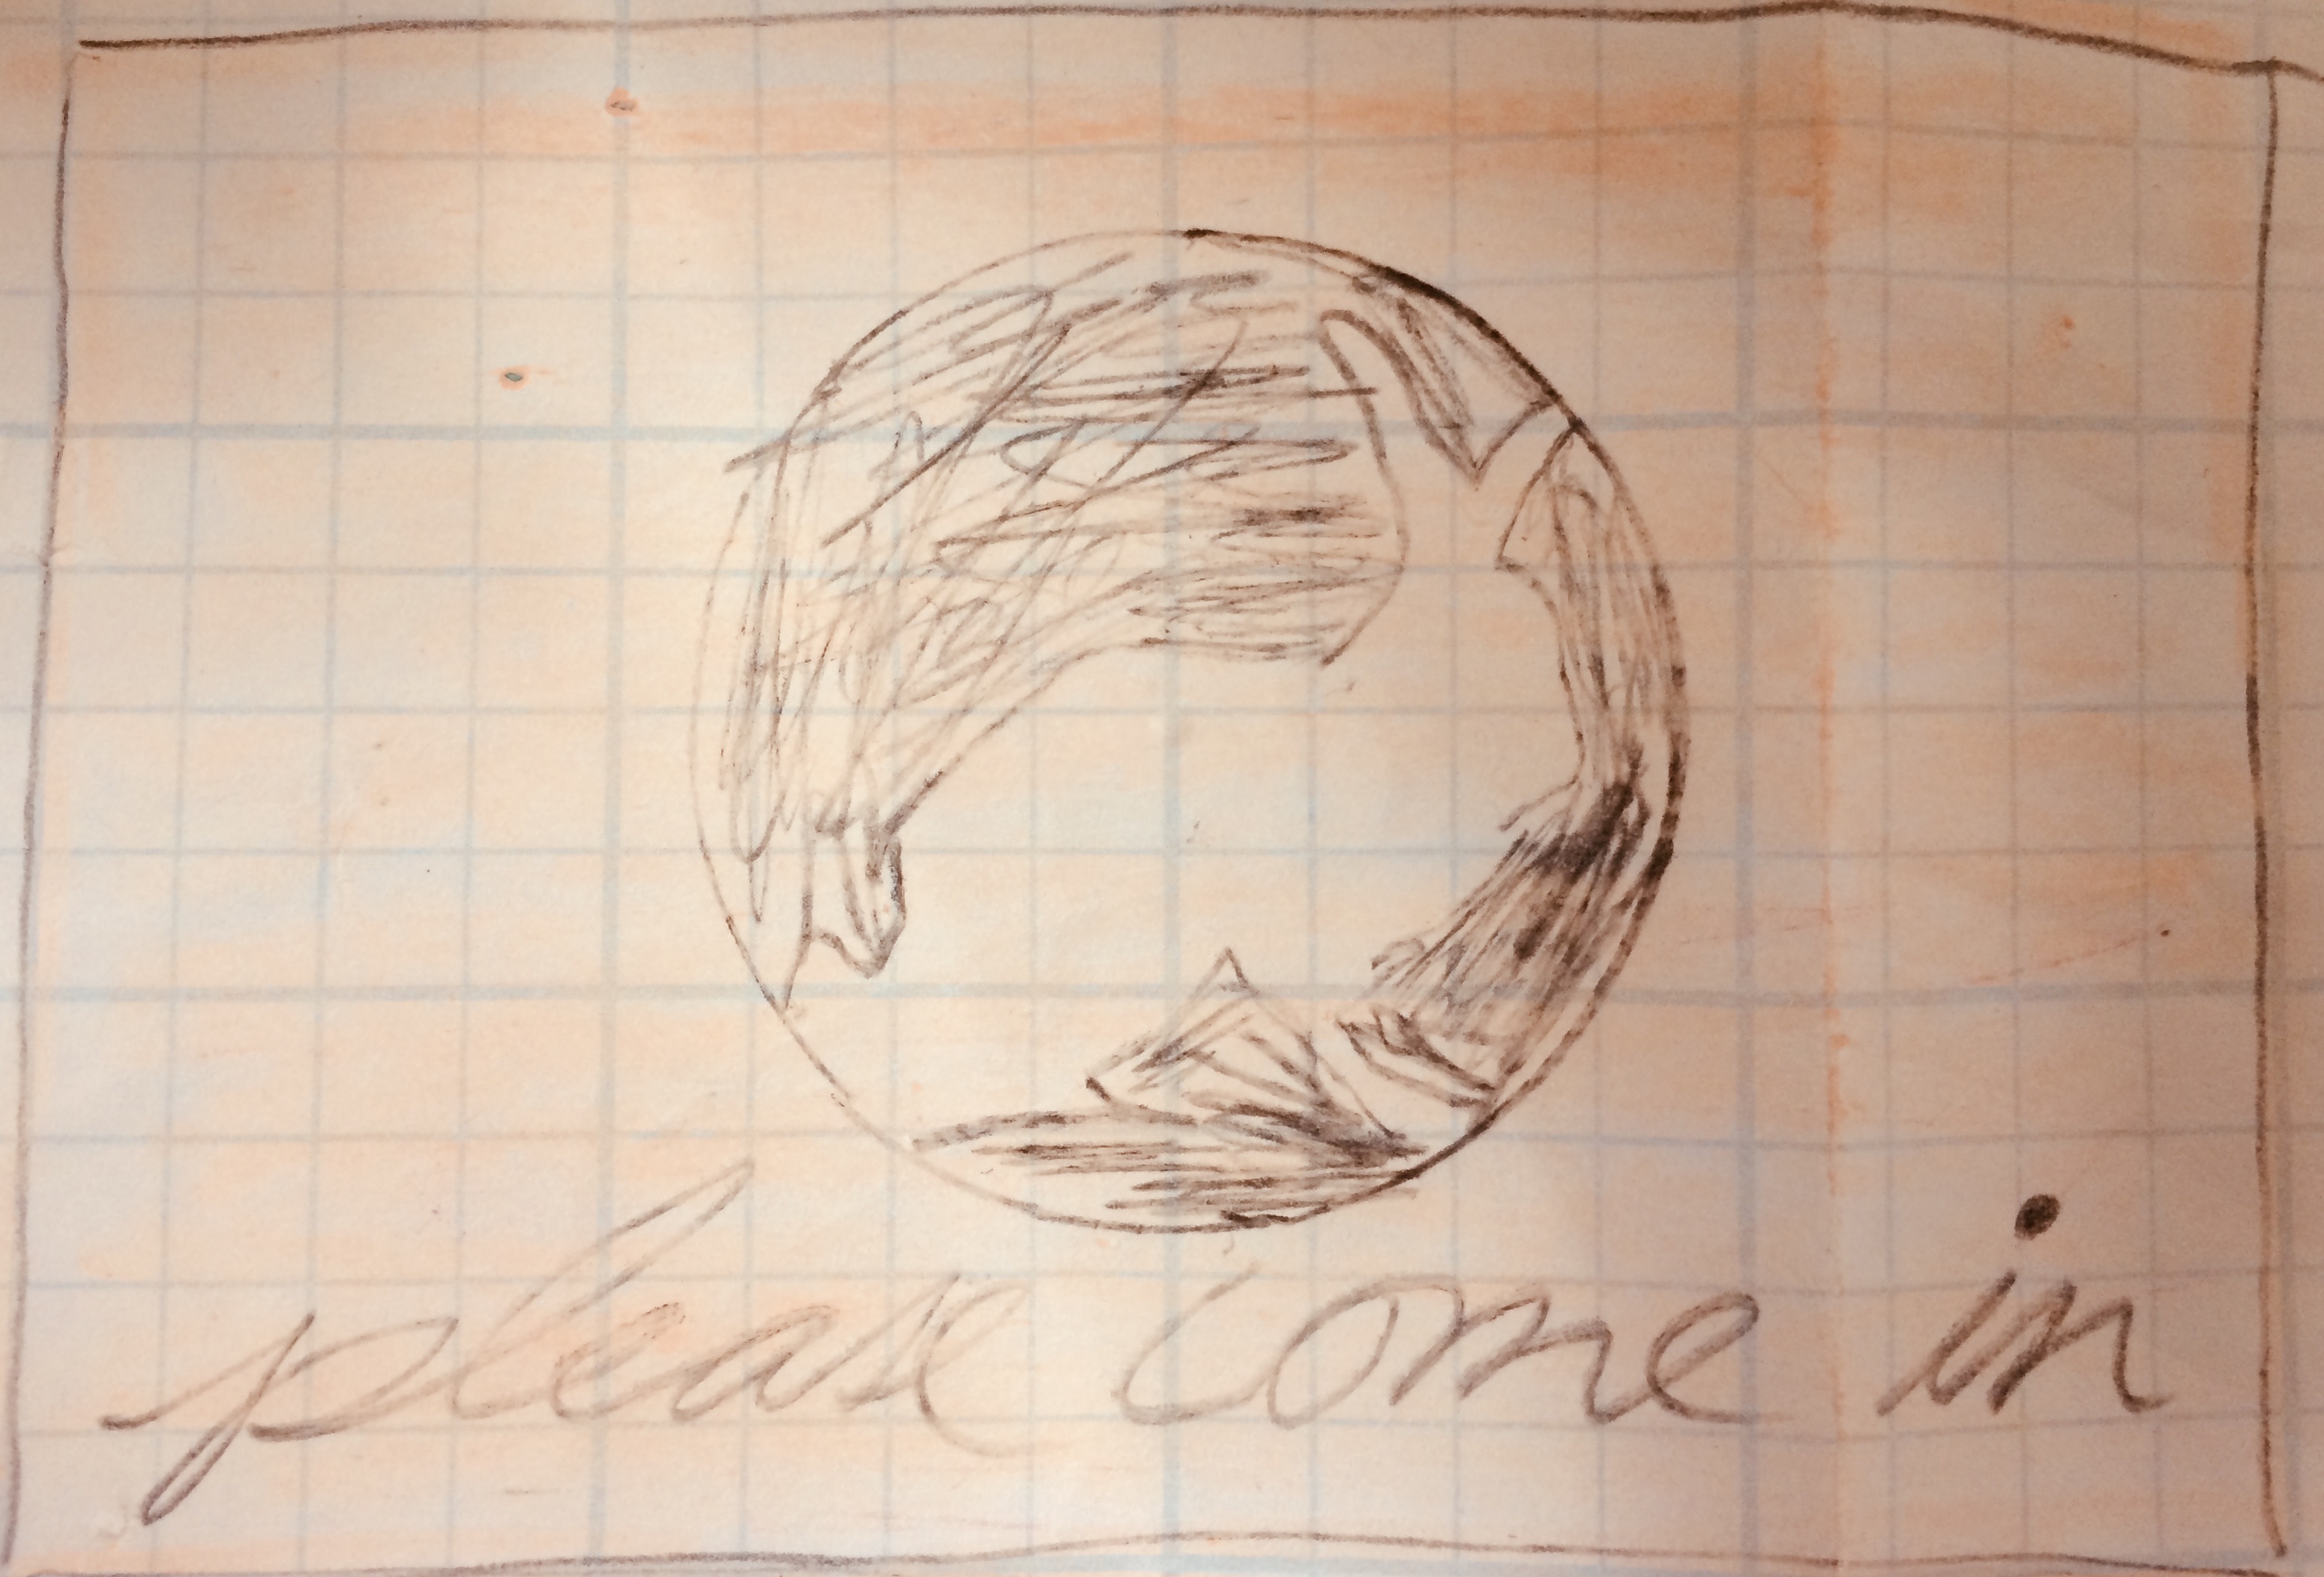 please come in